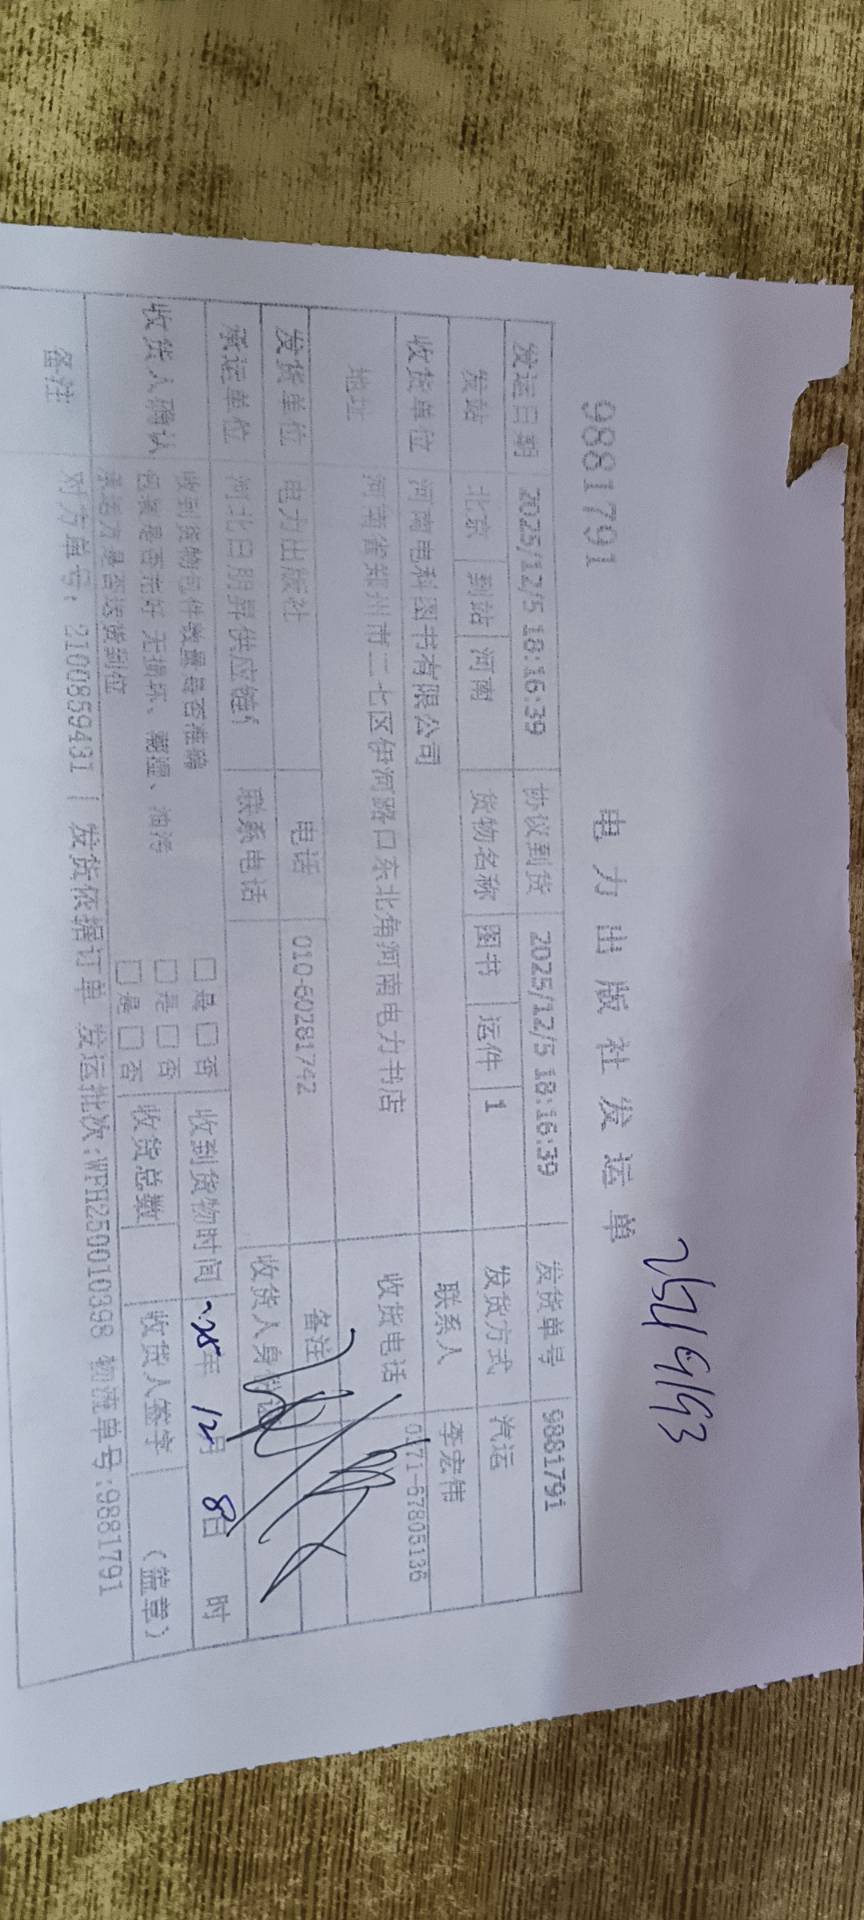 9881791
电力出版社发运单
发运日期 2025/12/5 18:16:39 协议到货 2025/12/5 18:16:39 发货单号 9881791
发站 北京 到站 河南 货物名称 图书 运件 1 发货方式 汽运
收货单位 河南电科图书有限公司 联系人 李宏伟
地址 河南省郑州市二七区伊河路口东北角河南电力书店 收货电话 0371-67805136
发货单位 电力出版社 电话 010-60281742 备注
承运单位 河北日朋昇供应链 联系电话 收货人身份证
收货人确认 收到货物包件数量是否准确 □是□否 收到货物时间 25年 12月 8日 时
包装是否完好 无损坏、潮湿、油污 □是□否 收货总数 收货人签字 (盖章)
承运方是否送货到位 □是□否
备注 对方单号: 2100859431 | 发货依据订单 发运批次:WFH250010398 物流单号:9881791